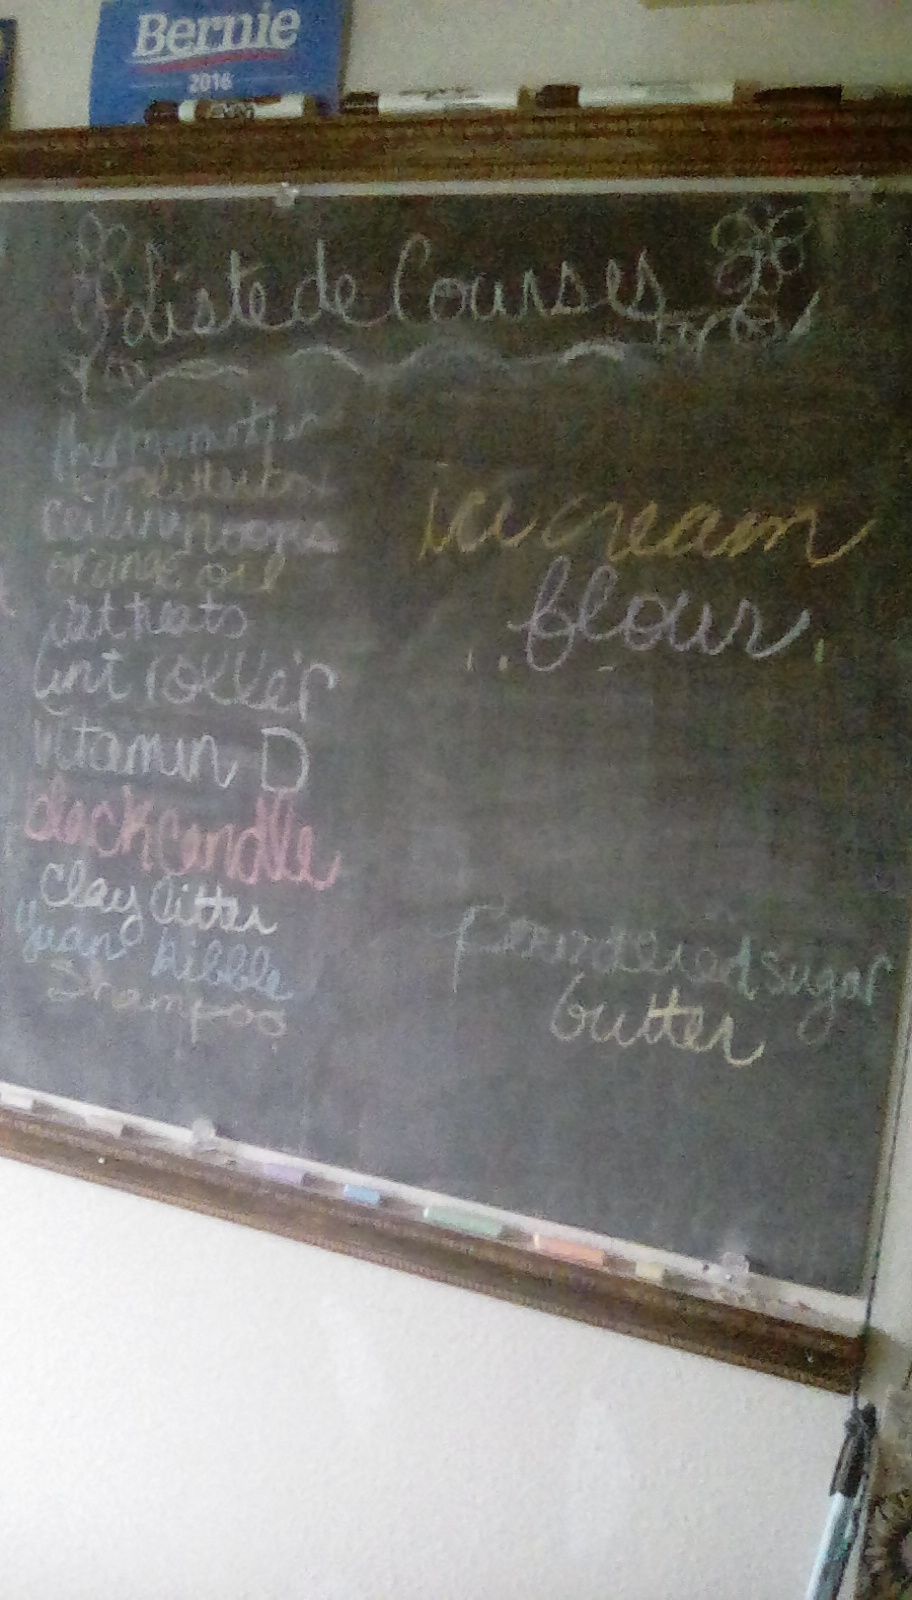 Bernie
2016
Liste de Courses
ceiling hooks
orange oil
wet treats
lint roller
Vitamin D
black candle
clay litter
kibble
Shampoo
ice cream
flour
powdered sugar
butter